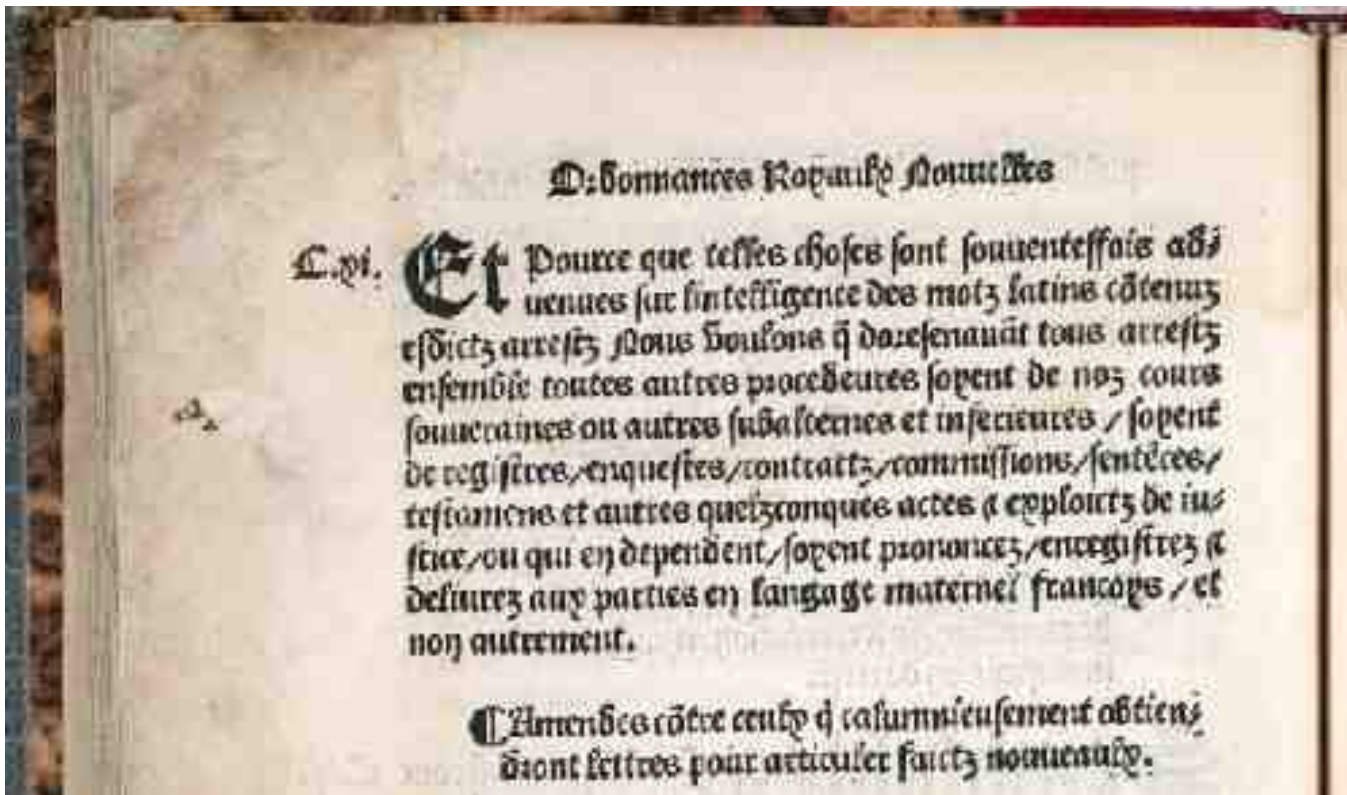 Ordonnances Royaulx Nouuelles
C.xi.
Et Pource que telles choses sont souuenteffois ad/
uenues sur lintelligence des motz latins cõtenuz
esdictz arrestz Nous voulons q̃ doresenauãt tous arrestz
ensemble toutes autres procedeures soyent de noz cours
souueraines ou autres subalternes et inferieures / soyent
de registres/enquestes/contractz/commissions/sentẽces/
testamens et autres quelzconques actes ⁊ exploictz de iu/
stice/ou qui en dependent/soyent prononcez/enregistrez ⁊
deliurez aux parties en langage maternel francoys / et
non autrement.
¶ Amendes cõtre ceulx q̃ calumnieusement obtien/
dront lettres pour articuler faictz nouueaulx.